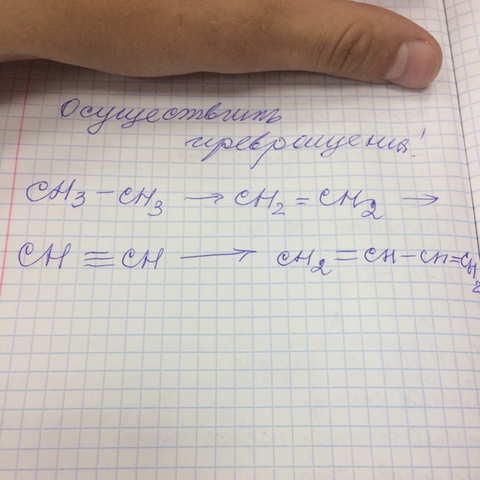 Осуществить
превращения!
CH₃–CH₃ → CH₂=CH₂ →
CH≡CH → CH₂=CH–CH=CH₂